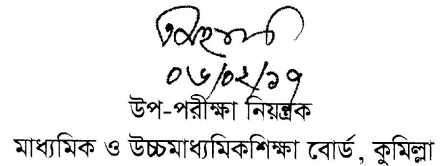 ০৬/০২/১৭
উপ-পরীক্ষা নিয়ন্ত্রক
মাধ্যমিক ও উচ্চমাধ্যমিকশিক্ষা বোর্ড, কুমিল্লা